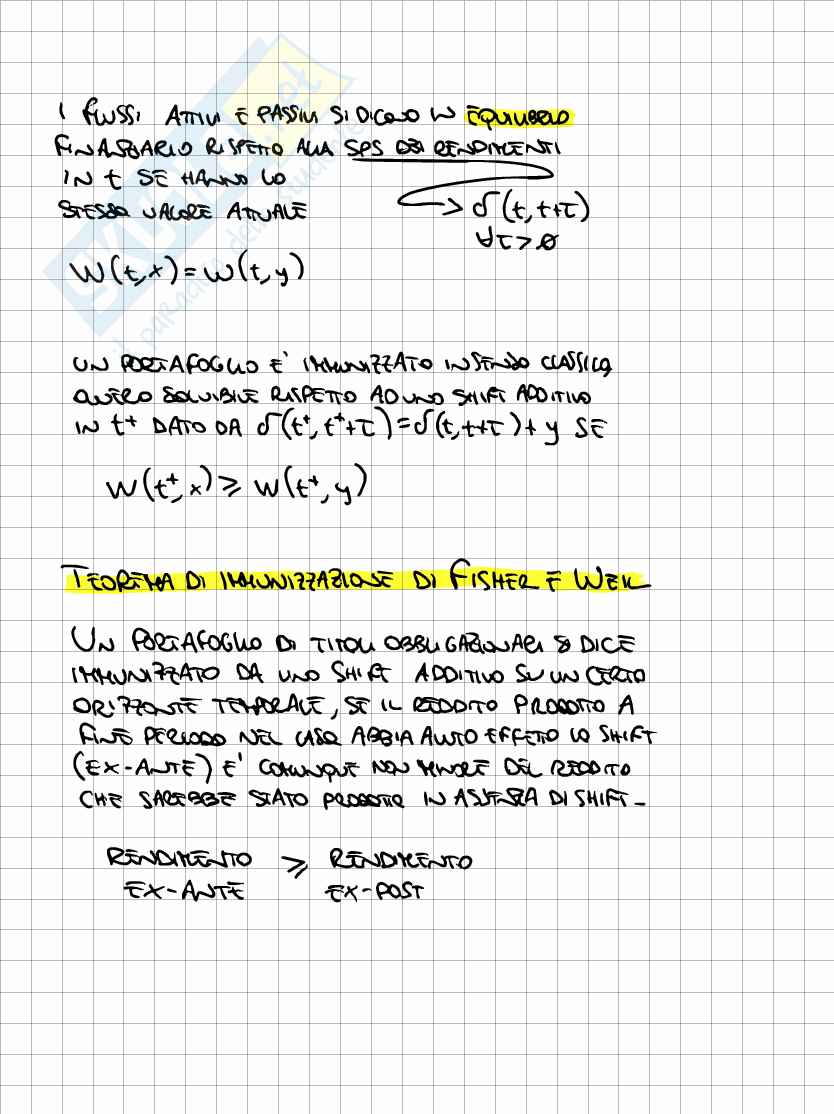 I FLUSSI ATTIVI E PASSIVI SI DICONO IN EQUILIBRIO
FINANZIARIO RISPETTO ALLA SPS DEI RENDIMENTI
IN t SE HANNO LO
STESSO VALORE ATTUALE
→ δ(t, t+τ)
∀τ>0
W(t,x)=W(t,y)
UN PORTAFOGLIO E' IMMUNIZZATO IN SENSO CLASSICO,
OVVERO SOLVIBILE RISPETTO AD UNO SHIFT ADDITIVO
IN t⁺ DATO DA δ(t⁺, t⁺+τ)=δ(t, t+τ)+y SE
W(t⁺,x) ⩾ W(t⁺,y)
TEOREMA DI IMMUNIZZAZIONE DI FISHER E WEIL
UN PORTAFOGLIO DI TITOLI OBBLIGAZIONARI SI DICE
IMMUNIZZATO DA UNO SHIFT ADDITIVO SU UN CERTO
ORIZZONTE TEMPORALE, SE IL REDDITO PRODOTTO A
FINE PERIODO NEL CASO ABBIA AVUTO EFFETTO LO SHIFT
(EX-ANTE) E' COMUNQUE NON MINORE DEL REDDITO
CHE SAREBBE STATO PRODOTTO IN ASSENZA DI SHIFT-
RENDIMENTO ⩾ RENDIMENTO
EX-ANTE EX-POST